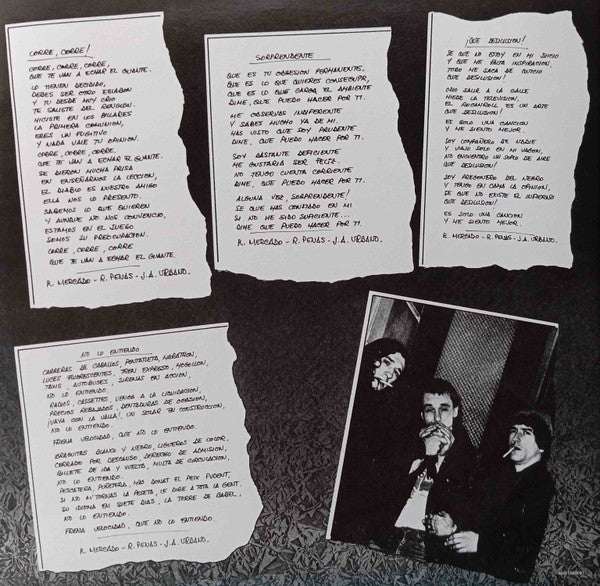 CORRE, CORRE!
CORRE, CORRE, CORRE,
QUE TE VAN A ECHAR EL GUANTE.
LO TIENEN DECIDIDO,
DEBES SER OTRO ESLABON
Y TU DESDE MUY CRIO
TE SALISTE DEL RENGLON.
HICISTE EN LOS BILLARES
LA PRIMERA COMUNION,
ERES UN FUGITIVO
Y NADA VALE TU OPINION.
CORRE, CORRE, CORRE,
QUE TE VAN A ECHAR EL GUANTE.
SE DIERON MUCHA PRISA
EN ENSEÑARNOS LA LECCION,
EL DIABLO ES NUESTRO AMIGO
ELLA NOS LO PRESENTO.
SABEMOS LO QUE QUIEREN
Y AUNQUE NO NOS CONVENCIO,
ESTAMOS EN EL JUEGO
SOMOS SU PREOCUPACION.
CORRE, CORRE, CORRE
QUE TE VAN A ECHAR EL GUANTE.
R. MERCADO - R. PENAS - J.A. URBANO.
SORPRENDENTE
QUE ES TU OBSESION PERMANENTE,
QUE ES LO QUE QUIERES CONSEGUIR,
QUE ES LO QUE CARGA EL AMBIENTE
DIME, QUE PUEDO HACER POR TI.
ME OBSERVAS INDIFERENTE
Y SABES MUCHO YA DE MI.
HAS VISTO QUE SOY PRUDENTE
DIME, QUE PUEDO HACER POR TI.
SOY BASTANTE DEFICIENTE
ME GUSTARIA SER FELIZ.
NO TENGO CUENTA CORRIENTE
DIME, QUE PUEDO HACER POR TI.
ALGUNA VEZ, SORPRENDENTE!
SE QUE HAS CONFIADO EN MI
SI NO HE SIDO SUFICIENTE...
DIME QUE PUEDO HACER POR TI.
R. MERCADO - R. PENAS - J.A. URBANO.
¡QUE DESILUSION!
SE QUE NO ESTOY EN MI JUICIO
Y QUE ME FALTA INSPIRACION,
TODO ME SACA DE QUICIO
QUE DESILUSION!
ODIO SALIR A LA CALLE
MIEDO LA TELEVISION,
EL ROCANROLL ES UN ARTE
QUE DESILUSION!
ES SOLO UNA CANCION
Y ME SIENTO MEJOR.
SOY COMPAÑERO DE NADIE
Y VIAJO SOLO EN MI VAGON,
NO ENCUENTRO UN SOPLO DE AIRE
QUE DESILUSION!
SOY PREGONERO DEL NEGRO
Y TENGO EN CAMA LA OPINION,
SE QUE NO EXISTE EL INFIERNO
QUE DESILUSION!
ES SOLO UNA CANCION
Y ME SIENTO MEJOR.
R. MERCADO - R. PENAS - J.A. URBANO.
NO LO ENTIENDO
CARRERAS DE CABALLOS, PENTATLETA, MARATHON,
LUCES FLUORESCENTES, TREN EXPRESO, MOGOLLON,
TAXIS, AUTOBUSES, SIRENAS EN ACCION,
NO LO ENTIENDO.
RADIOS, CASSETTES, VENGA A LA LIQUIDACION,
PRECIOS REBAJADOS, DENTADURAS DE OCASION,
¡VAYA CON LA VALLA!, UN SOLAR EN CONSTRUCCION,
NO LO ENTIENDO.
FRENA VELOCIDAD, QUE NO LO ENTIENDO.
BRAGUITAS BLANCO Y NEGRO, LIGUEROS DE COLOR,
CERRADO POR DESCANSO, DERECHO DE ADMISION,
BILLETE DE IDA Y VUELTA, MULTA DE CIRCULACION,
NO LO ENTIENDO.
PESCATERA, PUÑETERA, M'AS DONAT EL PEIX PUDENT,
SI NO M'TORNAS LA PESETA, LE DIRE A TOTA LA GENT.
SU IDIOMA EN SIETE DIAS, LA TORRE DE BABEL,
NO LO ENTIENDO.
FRENA VELOCIDAD, QUE NO LO ENTIENDO.
R. MERCADO - R. PENAS - J.A. URBANO.